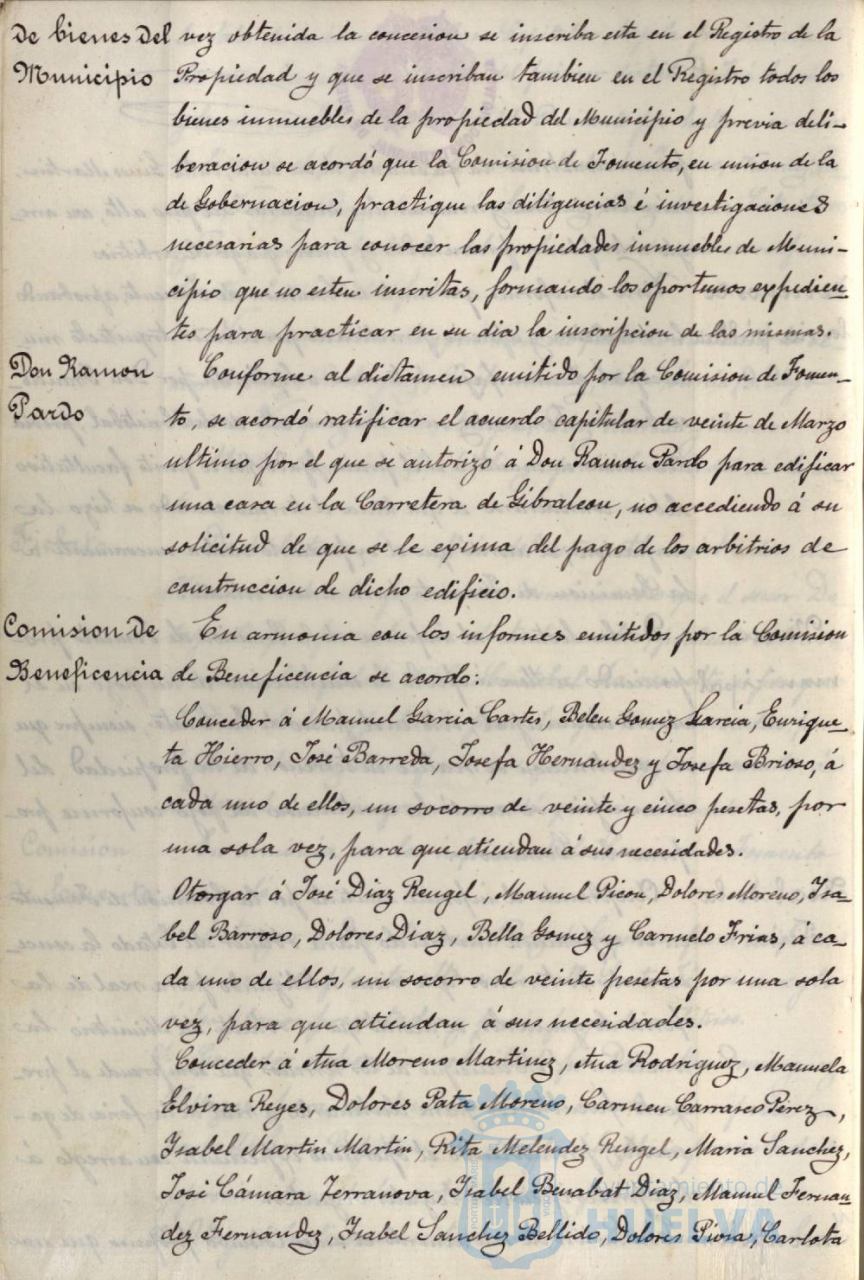 de bienes del
Municipio
vez obtenida la concesion se inscriba esta en el Registro de la
Propiedad y que se inscriban tambien en el Registro todos los
bienes inmuebles de la propiedad del Municipio y previa deli-
beracion se acordó que la Comision de Fomento, en union de la
de Gobernacion, practique las diligencias é investigaciones
necesarias para conocer las propiedades inmuebles de Muni-
cipio que no esten inscritas, formando los oportunos expedien-
tes para practicar en su dia la inscripcion de las mismas.
Don Ramon
Pardo
Conforme al dictamen emitido por la Comision de Fomen-
to, se acordó ratificar el acuerdo capitular de veinte de Marzo
ultimo por el que se autorizó á Don Ramon Pardo para edificar
una casa en la Carretera de Gibraleon, no accediendo á su
solicitud de que se le exima del pago de los arbitrios de
construccion de dicho edificio.
Comision de
Beneficencia
En armonia con los informes emitidos por la Comision
de Beneficencia se acordo:
Conceder á Manuel Garcia Cartes, Belen Gomez García, Enrique-
ta Hierro, José Barreda, Josefa Hernandez y Josefa Brioso, á
cada uno de ellos, un socorro de veinte y cinco pesetas, por
una sola vez, para que atiendan á sus necesidades.
Otorgar á José Diaz Rengel, Manuel Picon, Dolores Moreno, Isa-
bel Barroso, Dolores Diaz, Bella Gomez y Carmelo Frias, á ca-
da uno de ellos, un socorro de veinte pesetas por una sola
vez, para que atiendan á sus necesidades.
Conceder á Ana Moreno Martinez, Ana Rodriguez, Manuela
Elvira Reyes, Dolores Pata Moreno, Carmen Carrasco Pérez,
Isabel Martin Martin, Rita Melendez Rengel, Maria Sanchez,
José Cámara Terranova, Isabel Benabat Diaz, Manuel Fernan-
dez Fernandez, Isabel Sanchez Bellido, Dolores Piosa, Carlota
Ayuntamiento de
HUELVA